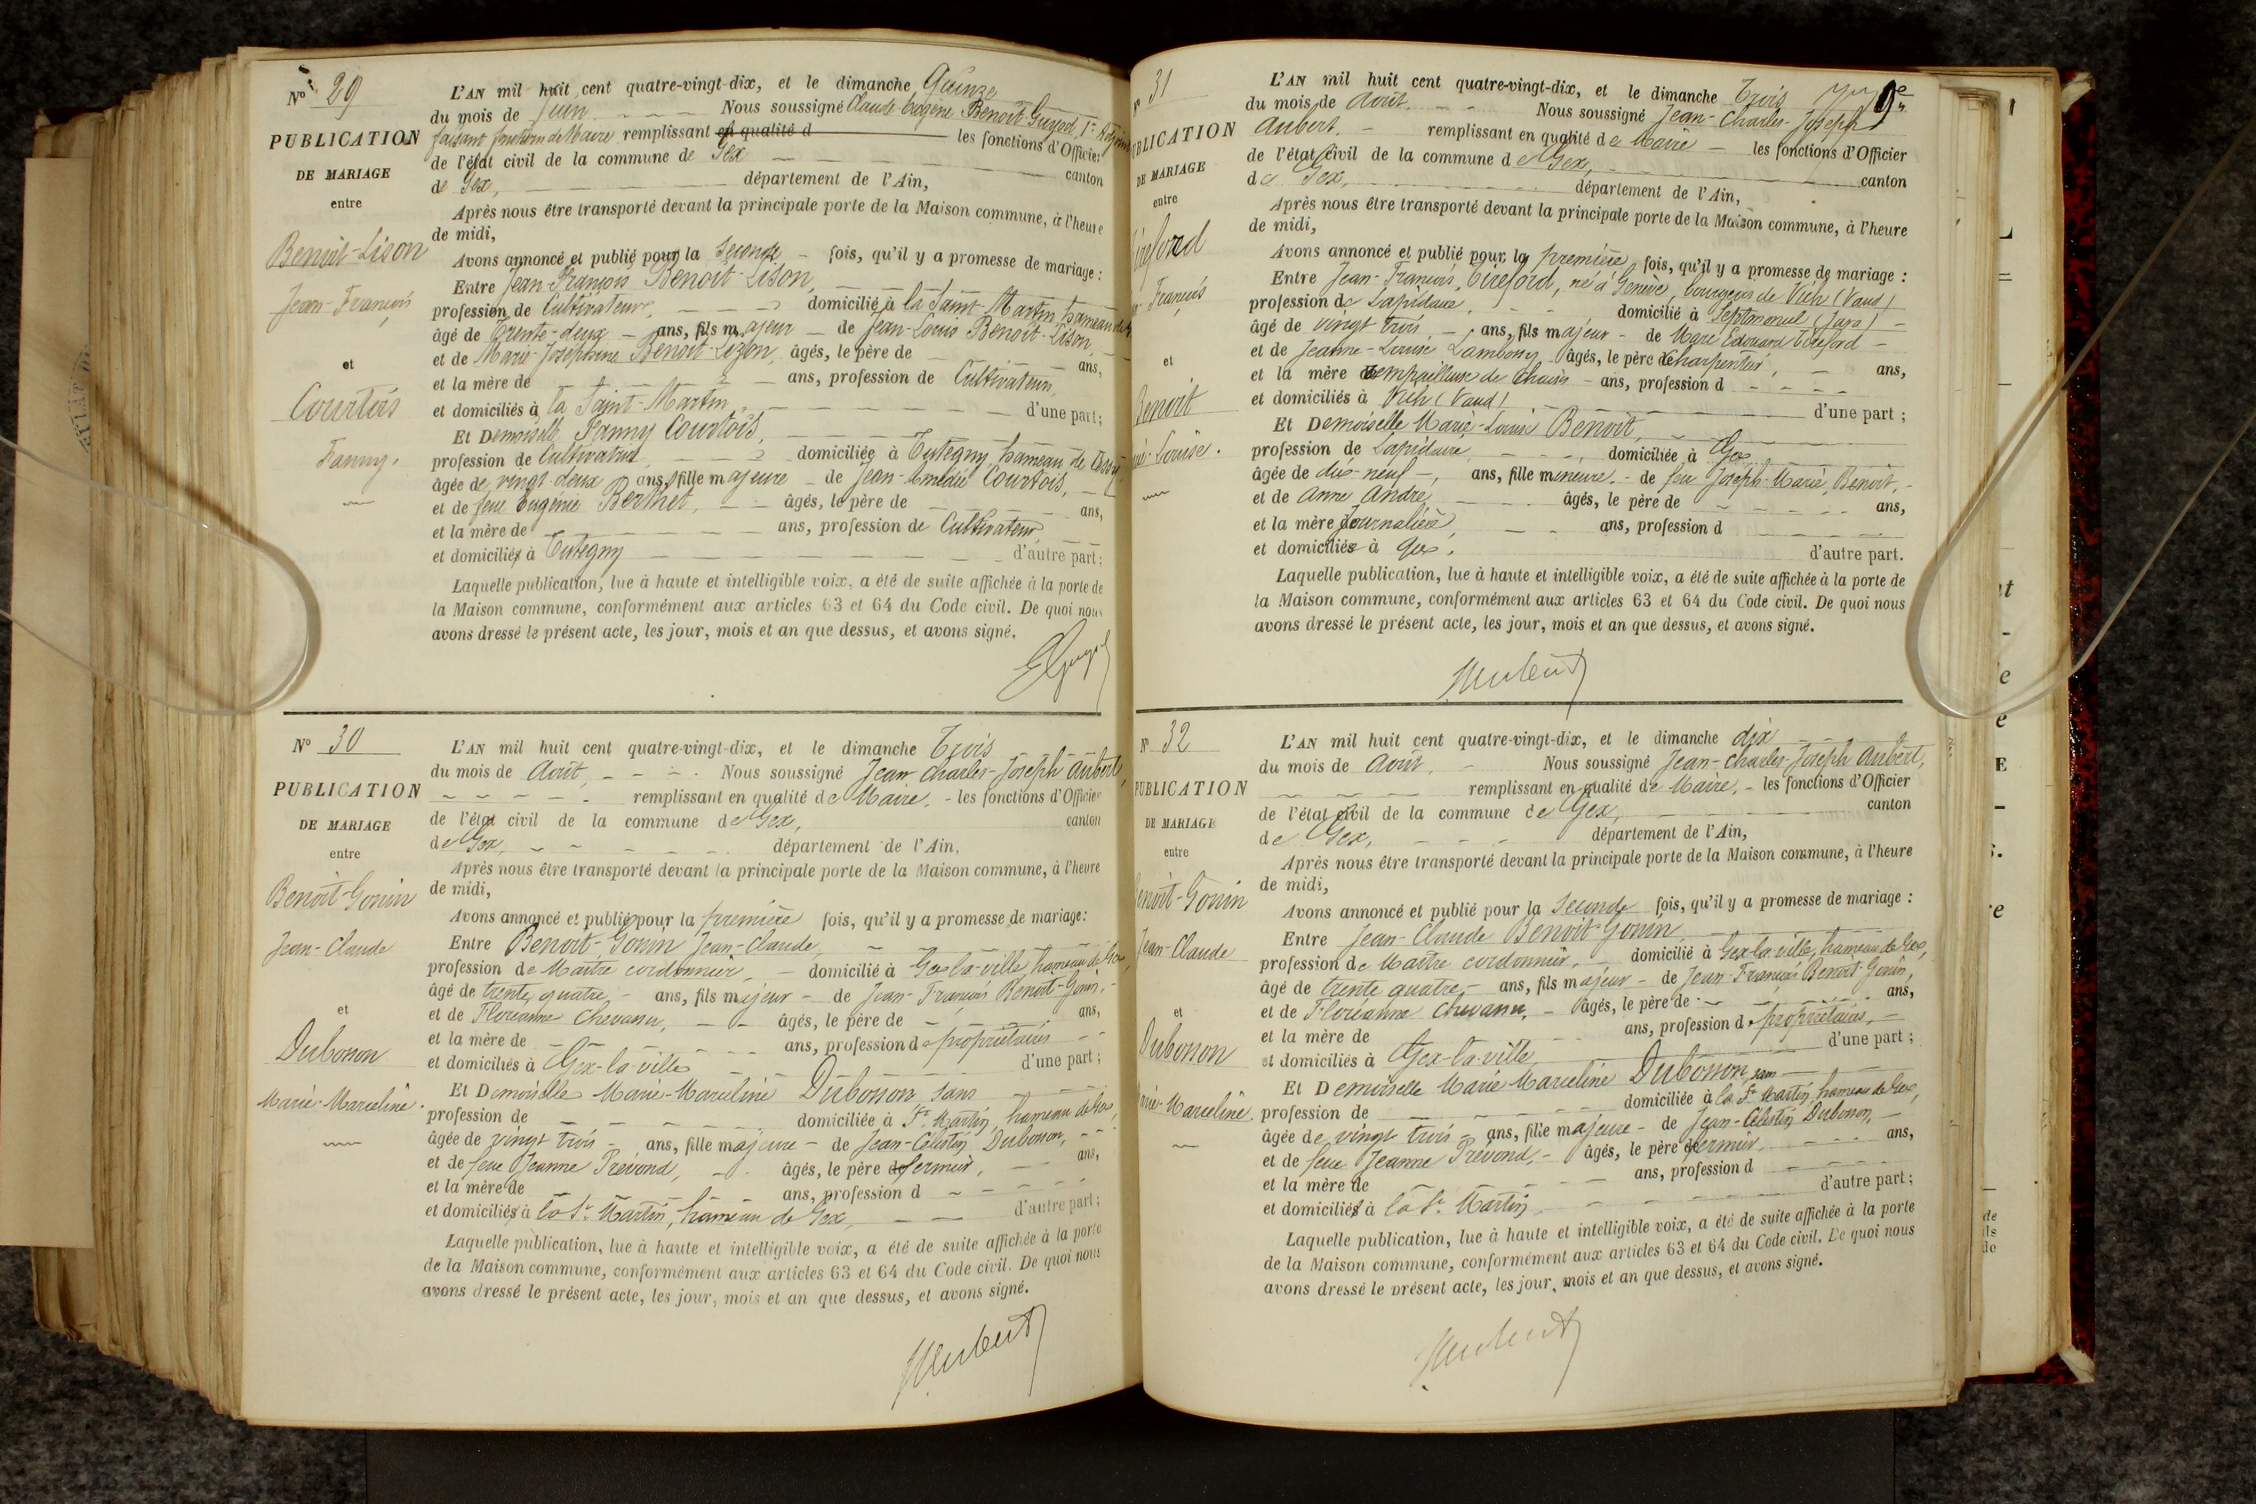 N° 29
PUBLICATION
DE MARIAGE
entre
Benoit-Lison
Jean-François
et
Courtois
Fanny.
L'AN mil huit cent quatre-vingt-dix, et le dimanche Quinze
du mois de Juin Nous soussigné Claude Eugène Benoit-Guyod, 1er Adjoint
faisant fonction de Maire remplissant en qualité d les fonctions d'Officier
de l'état civil de la commune de Gex canton
de Gex, département de l'Ain,
Après nous être transporté devant la principale porte de la Maison commune, à l'heure
de midi,
Avons annoncé et publié pour la Seconde fois, qu'il y a promesse de mariage :
Entre Jean-François Benoit-Lison,
profession de Cultivateur, domicilié à la Saint-Martin, hameau de
âgé de Trente-deux ans, fils majeur de Jean-Louis Benoit-Lison,
et de Marie-Josephine Benoit-Lizon, âgés, le père de ans,
et la mère de ans, profession de Cultivateurs,
et domiciliés à la Saint-Martin, d'une part;
Et Demoiselle Fanny Courtois,
profession de Cultivatrice domiciliée à Tutegny, hameau de
âgée de vingt-deux ans, fille majeure de Jean-Amédée Courtois,
et de feue Eugénie Berthet, âgés, le père de ans,
et la mère de ans, profession de Cultivateur
et domiciliés à Tutegny d'autre part;
Laquelle publication, lue à haute et intelligible voix, a été de suite affichée à la porte de
la Maison commune, conformément aux articles 63 et 64 du Code civil. De quoi nous
avons dressé le présent acte, les jour, mois et an que dessus, et avons signé.
N° 30
PUBLICATION
DE MARIAGE
entre
Benoit-Gonin
Jean-Claude
et
Dubosson
Marie-Marceline.
L'AN mil huit cent quatre-vingt-dix, et le dimanche Trois
du mois de Août, Nous soussigné Jean-Charles-Joseph Aubert,
remplissant en qualité de Maire, les fonctions d'Officier
de l'état civil de la commune de Gex, canton
de Gex, département de l'Ain,
Après nous être transporté devant la principale porte de la Maison commune, à l'heure
de midi,
Avons annoncé et publié pour la première fois, qu'il y a promesse de mariage:
Entre Benoit-Gonin Jean-Claude,
profession de Maître cordonnier, domicilié à Gex-la-ville, hameau de Gex,
âgé de trente quatre ans, fils majeur de Jean-François Benoit-Gonin,
et de Floréanne Chevassu, âgés, le père de ans,
et la mère de ans, profession de propriétaires
et domiciliés à Gex-la-ville d'une part;
Et Demoiselle Marie-Marceline Dubosson, sans
profession de domiciliée à St Martin, hameau de Gex,
âgée de vingt trois ans, fille majeure de Jean-Célestin Dubosson,
et de feue Jeanne Prévond, âgés, le père de fermier, ans,
et la mère de ans, profession d
et domiciliés à la St Martin, hameau de Gex, d'autre part;
Laquelle publication, lue à haute et intelligible voix, a été de suite affichée à la porte
de la Maison commune, conformément aux articles 63 et 64 du Code civil. De quoi nous
avons dressé le présent acte, les jour, mois et an que dessus, et avons signé.
JAubert
N° 31
PUBLICATION
DE MARIAGE
entre
Tireford
François
et
Benoit
Louise.
L'AN mil huit cent quatre-vingt-dix, et le dimanche Trois
du mois de Août, Nous soussigné Jean-Charles-Joseph
Aubert, remplissant en qualité de Maire les fonctions d'Officier
de l'état civil de la commune de Gex, canton
de Gex, département de l'Ain,
Après nous être transporté devant la principale porte de la Maison commune, à l'heure
de midi,
Avons annoncé et publié pour la première fois, qu'il y a promesse de mariage :
Entre Jean-François, Tireford, né à Genève, bourgeois de Vich (Vaud)
profession de Lapidaire, domicilié à Septmoncel (Jura)
âgé de vingt trois ans, fils majeur de Marc Edouard Tireford
et de Jeanne-Louise Lambossy âgés, le père de charpentier, ans,
et la mère de rempailleuse de chaises ans, profession d
et domiciliés à Vich (Vaud) d'une part;
Et Demoiselle Marie-Louise Benoit,
profession de Lapidaire domiciliée à Gex
âgée de dix-neuf, ans, fille mineure, de feu Joseph-Marie Benoit,
et de Anne André âgés, le père de ans,
et la mère de Journalière ans, profession d
et domiciliés à Gex, d'autre part.
Laquelle publication, lue à haute et intelligible voix, a été de suite affichée à la porte de
la Maison commune, conformément aux articles 63 et 64 du Code civil. De quoi nous
avons dressé le présent acte, les jour, mois et an que dessus, et avons signé.
JAubert
N° 32
PUBLICATION
DE MARIAGE
entre
Benoit-Gonin
Jean-Claude
et
Dubosson
Marie-Marceline.
L'AN mil huit cent quatre-vingt-dix, et le dimanche dix
du mois de Août, Nous soussigné Jean-Charles-Joseph Aubert,
remplissant en qualité de Maire, les fonctions d'Officier
de l'état civil de la commune de Gex, canton
de Gex, département de l'Ain,
Après nous être transporté devant la principale porte de la Maison commune, à l'heure
de midi,
Avons annoncé et publié pour la seconde fois, qu'il y a promesse de mariage :
Entre Jean-Claude Benoit-Gonin,
profession de Maître cordonnier, domicilié à Gex-la-ville, hameau de Gex,
âgé de trente quatre ans, fils majeur de Jean-François Benoit-Gonin,
et de Floréanne Chevassu, âgés, le père de ans,
et la mère de ans, profession de propriétaires,
et domiciliés à Gex-la-ville d'une part;
Et Demoiselle Marie Marceline Dubosson, sans
profession de domiciliée à la St Martin, hameau de Gex,
âgée de vingt trois ans, fille majeure de Jean-Célestin Dubosson,
et de feue Jeanne Prévond, âgés, le père de fermier, ans,
et la mère de ans, profession d
et domiciliés à la St Martin d'autre part;
Laquelle publication, lue à haute et intelligible voix, a été de suite affichée à la porte
de la Maison commune, conformément aux articles 63 et 64 du Code civil. De quoi nous
avons dressé le présent acte, les jour, mois et an que dessus, et avons signé.
JAubert